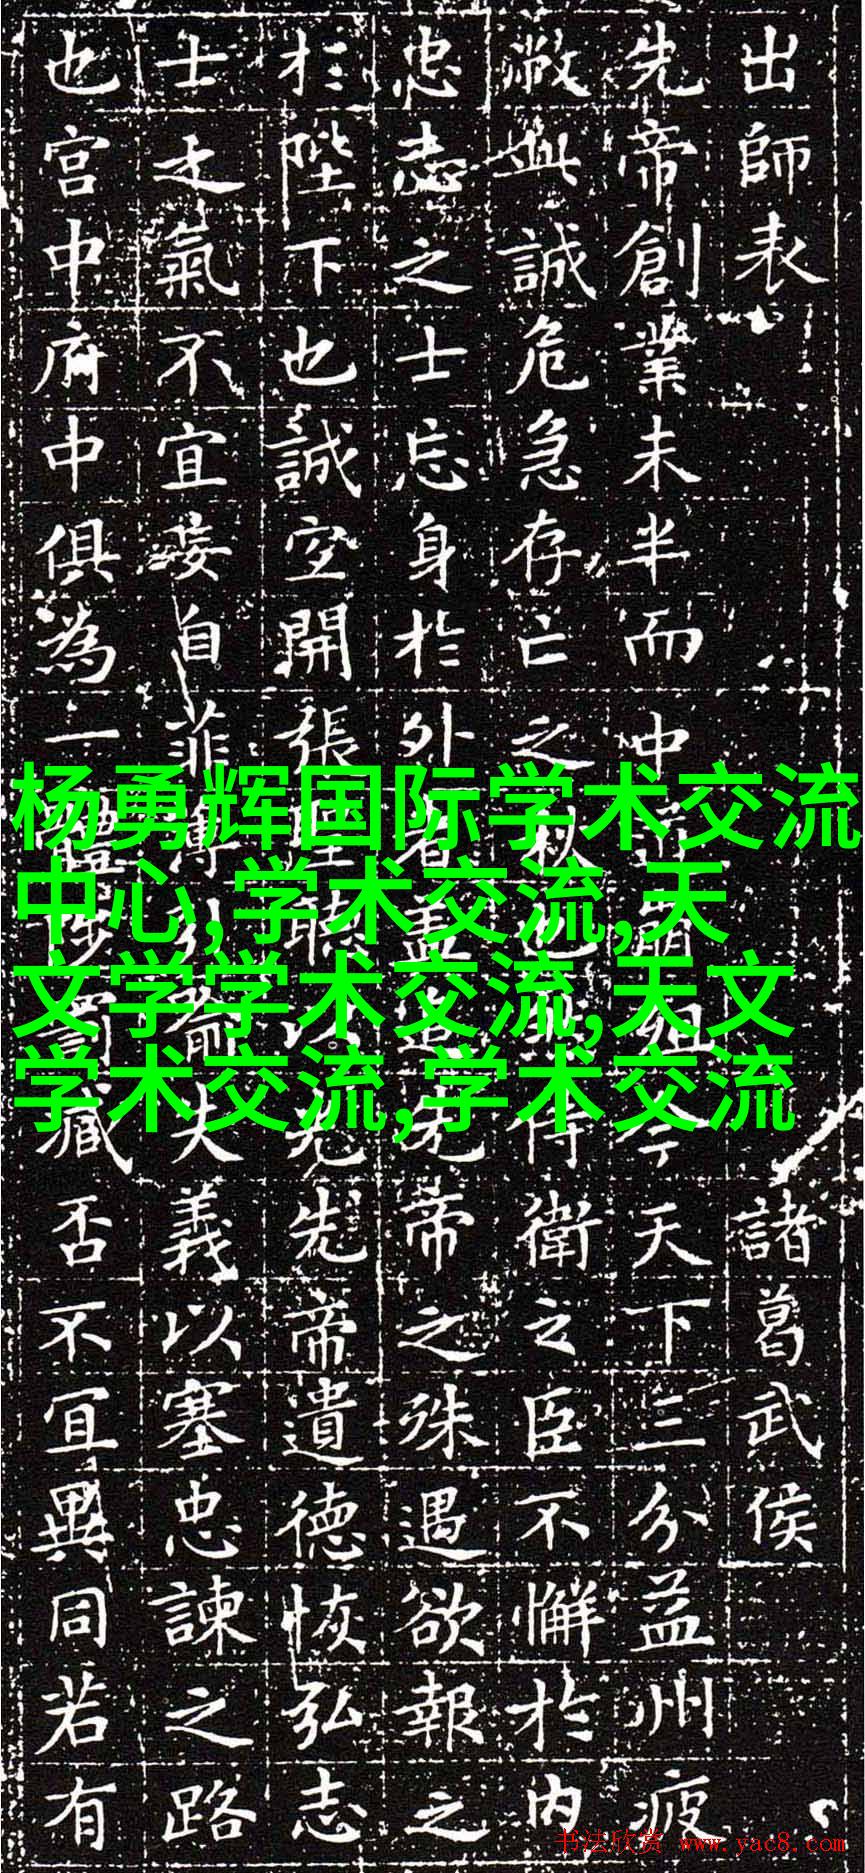 出師表 諸葛武侯
先帝創業未半而中道崩殂今天下三分益州疲
敝此誠危急存亡之秋也然侍衛之臣不懈於內
忠志之士忘身於外者蓋追先帝之殊遇欲報之
於陛下也誠空開張聖聽以光先帝遺德恢弘志
士之氣不宜妄自菲薄引喻失義以塞忠諫之路
也宮中府中俱為一體陟罰臧否不宜異同若有
杨勇辉国际学术交流
中心,学术交流,天
文学学术交流,天文
学术交流,学术交流
书法欣赏 www.yac8.com